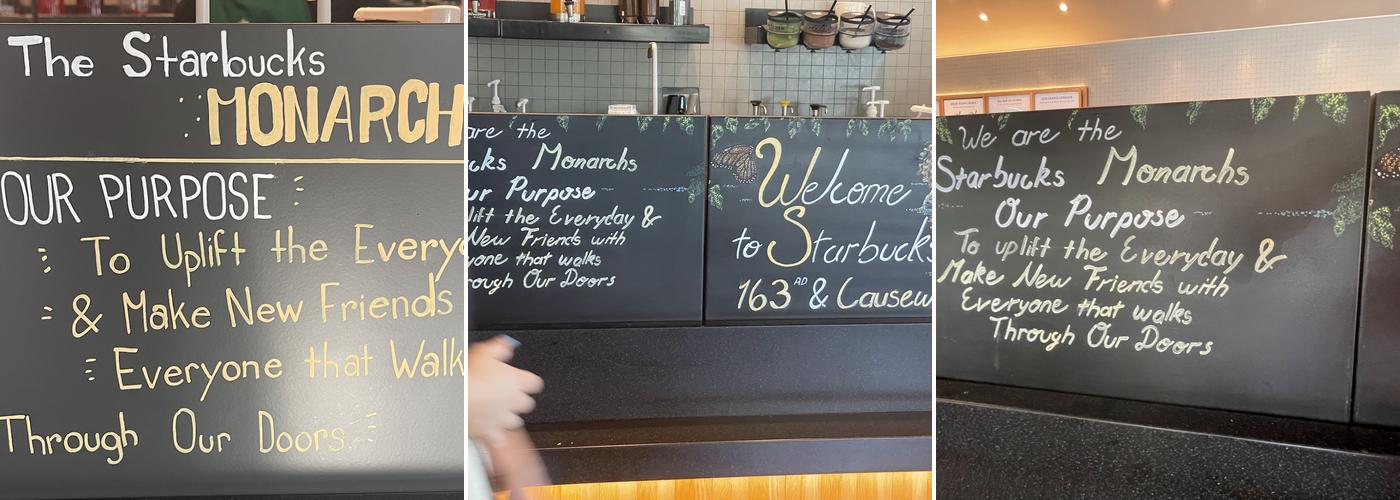 The Starbucks
MONARCH
OUR PURPOSE
To Uplift the Every
& Make New Friends
Everyone that Walk
Through Our Doors
are the
cks Monarchs
ur Purpose
lift the Everyday &
New Friends with
yone that walks
rough Our Doors
Welcome
to Starbucks
163 RD & Causew
We are the
Starbucks Monarchs
Our Purpose
To uplift the Everyday &
Make New Friends with
Everyone that walks
Through Our Doors